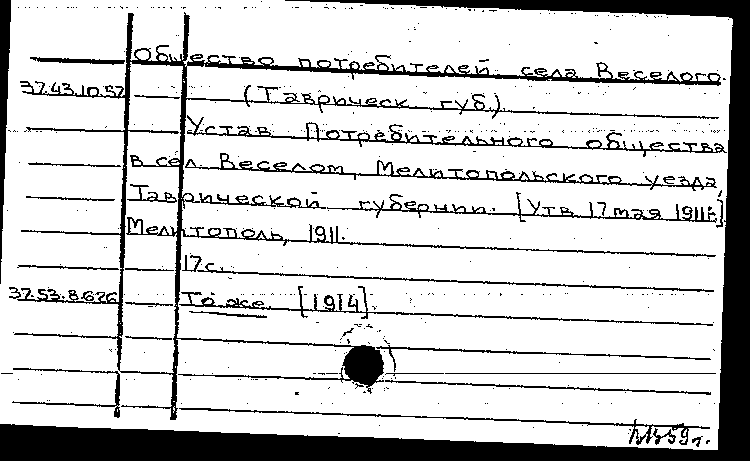 Общество потребителей села Веселого.
37.43.10.57 (Таврическ губ.)
Устав Потребительного общества
в сел. Веселом, Мелитопольского уезда,
Таврической губернии. [Утв. 17 мая 1911г.]
Мелитополь, 1911.
17с.
37.53.8.626 То же. [1914].
59г.